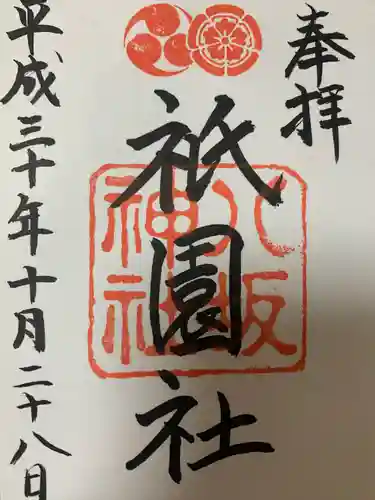 奉拝
八坂
神社
祇園社
平成三十年十月二十八日